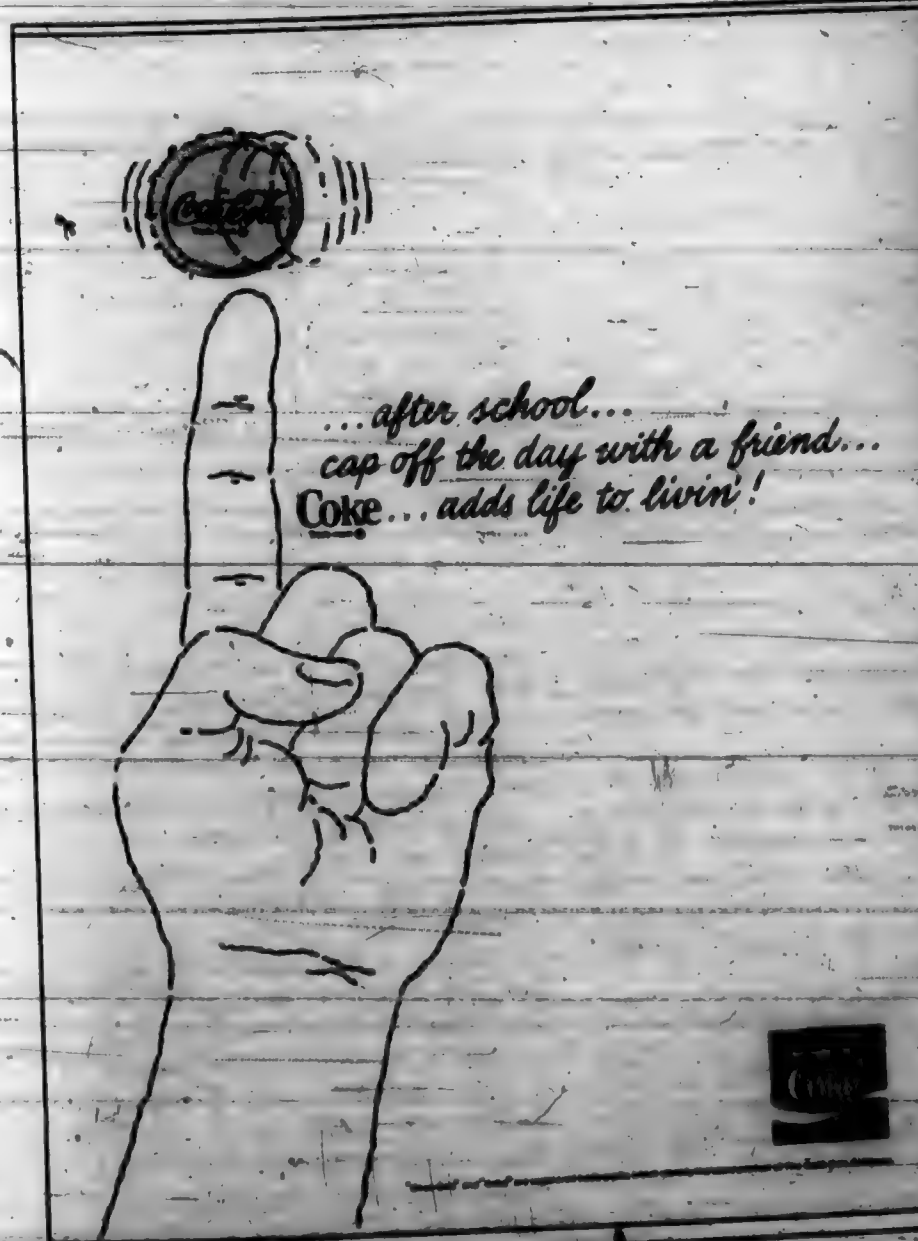 Coca-Cola
...after school...
cap off the day with a friend...
Coke... adds life to livin'!